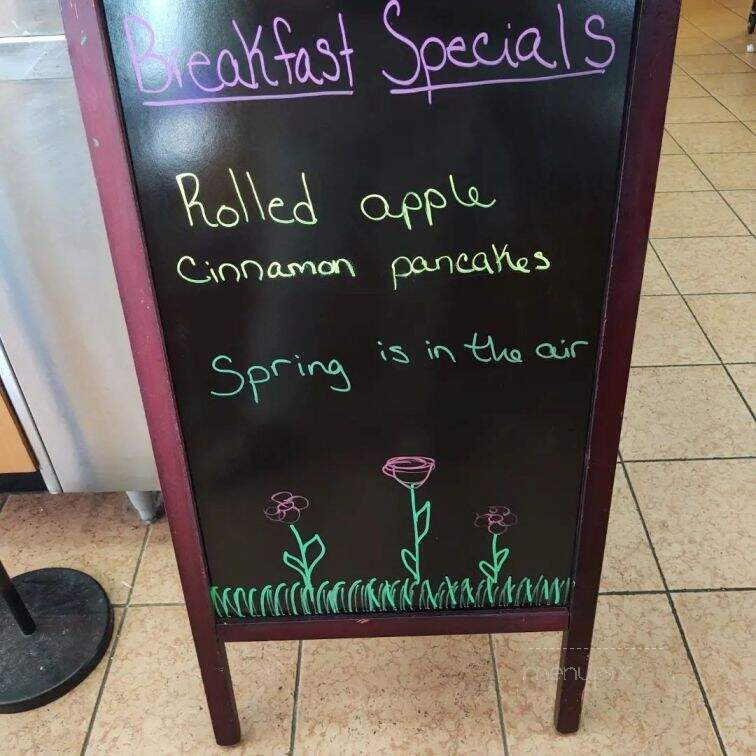 Breakfast Specials
Rolled apple
Cinnamon pancakes
Spring is in the air
menupix